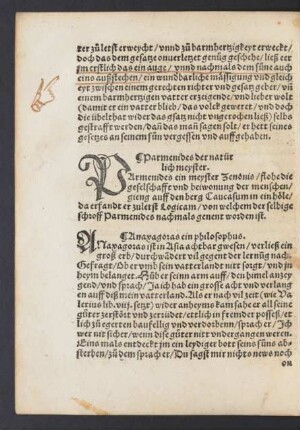 ter zů letst erweycht / vnnd zů barmhertzigkeyt erweckt /
doch das dem gesatze onuerletzt genůg geschehe / ließ er
jm erstlich das ein auge / vnnd nachmals dem süne auch
eins außstechen / ein wundbarliche mässigung vnd gleich
eyt zwischen einem gerechten richter vnd gesatzgeber / vñ
einem barmhertzigen vatter erzeigende / vnd lieber wolt
(damit er ein vatter blieb / das volck gewert / vnd doch
die übelthat wider das gsatz nicht vngerochen ließ) selbs
gestrafft werden / dañ das man sagen solt / er hett seines
gesetzes an seinem sün vergessen vnd auffgehaben.
¶Parmendes der natür
lich meyster.
PArmendes ein meyster Xenonis / flohe die
geselschafft vnd beiwonung der menschen /
gieng auff den berg Caucasum in ein hôle /
da erfandt er zů letst Logicam / von welchem der selbige
schroff Parmendes nachmals genent worden ist.
¶Anaxagoras ein philosophus.
ANaxagoras ist in Asia achtbar gwesen / verließ ein
groß erb / durchwandert vil gegent der lernũg nach.
Gefragt / Ob er vmb sein vatterlandt nit sorgt / vnd zů
beym belanget. Hůb er seinen arm auff / den himel anzey
gend / vnd sprach / Ja ich hab ein grosse acht vnd verlang
en auff diß mein vatterland. Als er nach vil zeit (wie Va
lerius lib. vij. setzt) wider anheyms kam sahe er all seine
güter zerstört vnd zerrüdet / ettlich in frembder posseß / et-
lich zů egerten baufellig vnd verdorben / sprach er / Ich
wer nit sicher / wenn dise güter nitt vndergangen weren.
Eins mals entdeckt jm ein leydiger bott seins süns ab-
sterben / zů dem sprach er / Du sagst mit nichts news noch
on